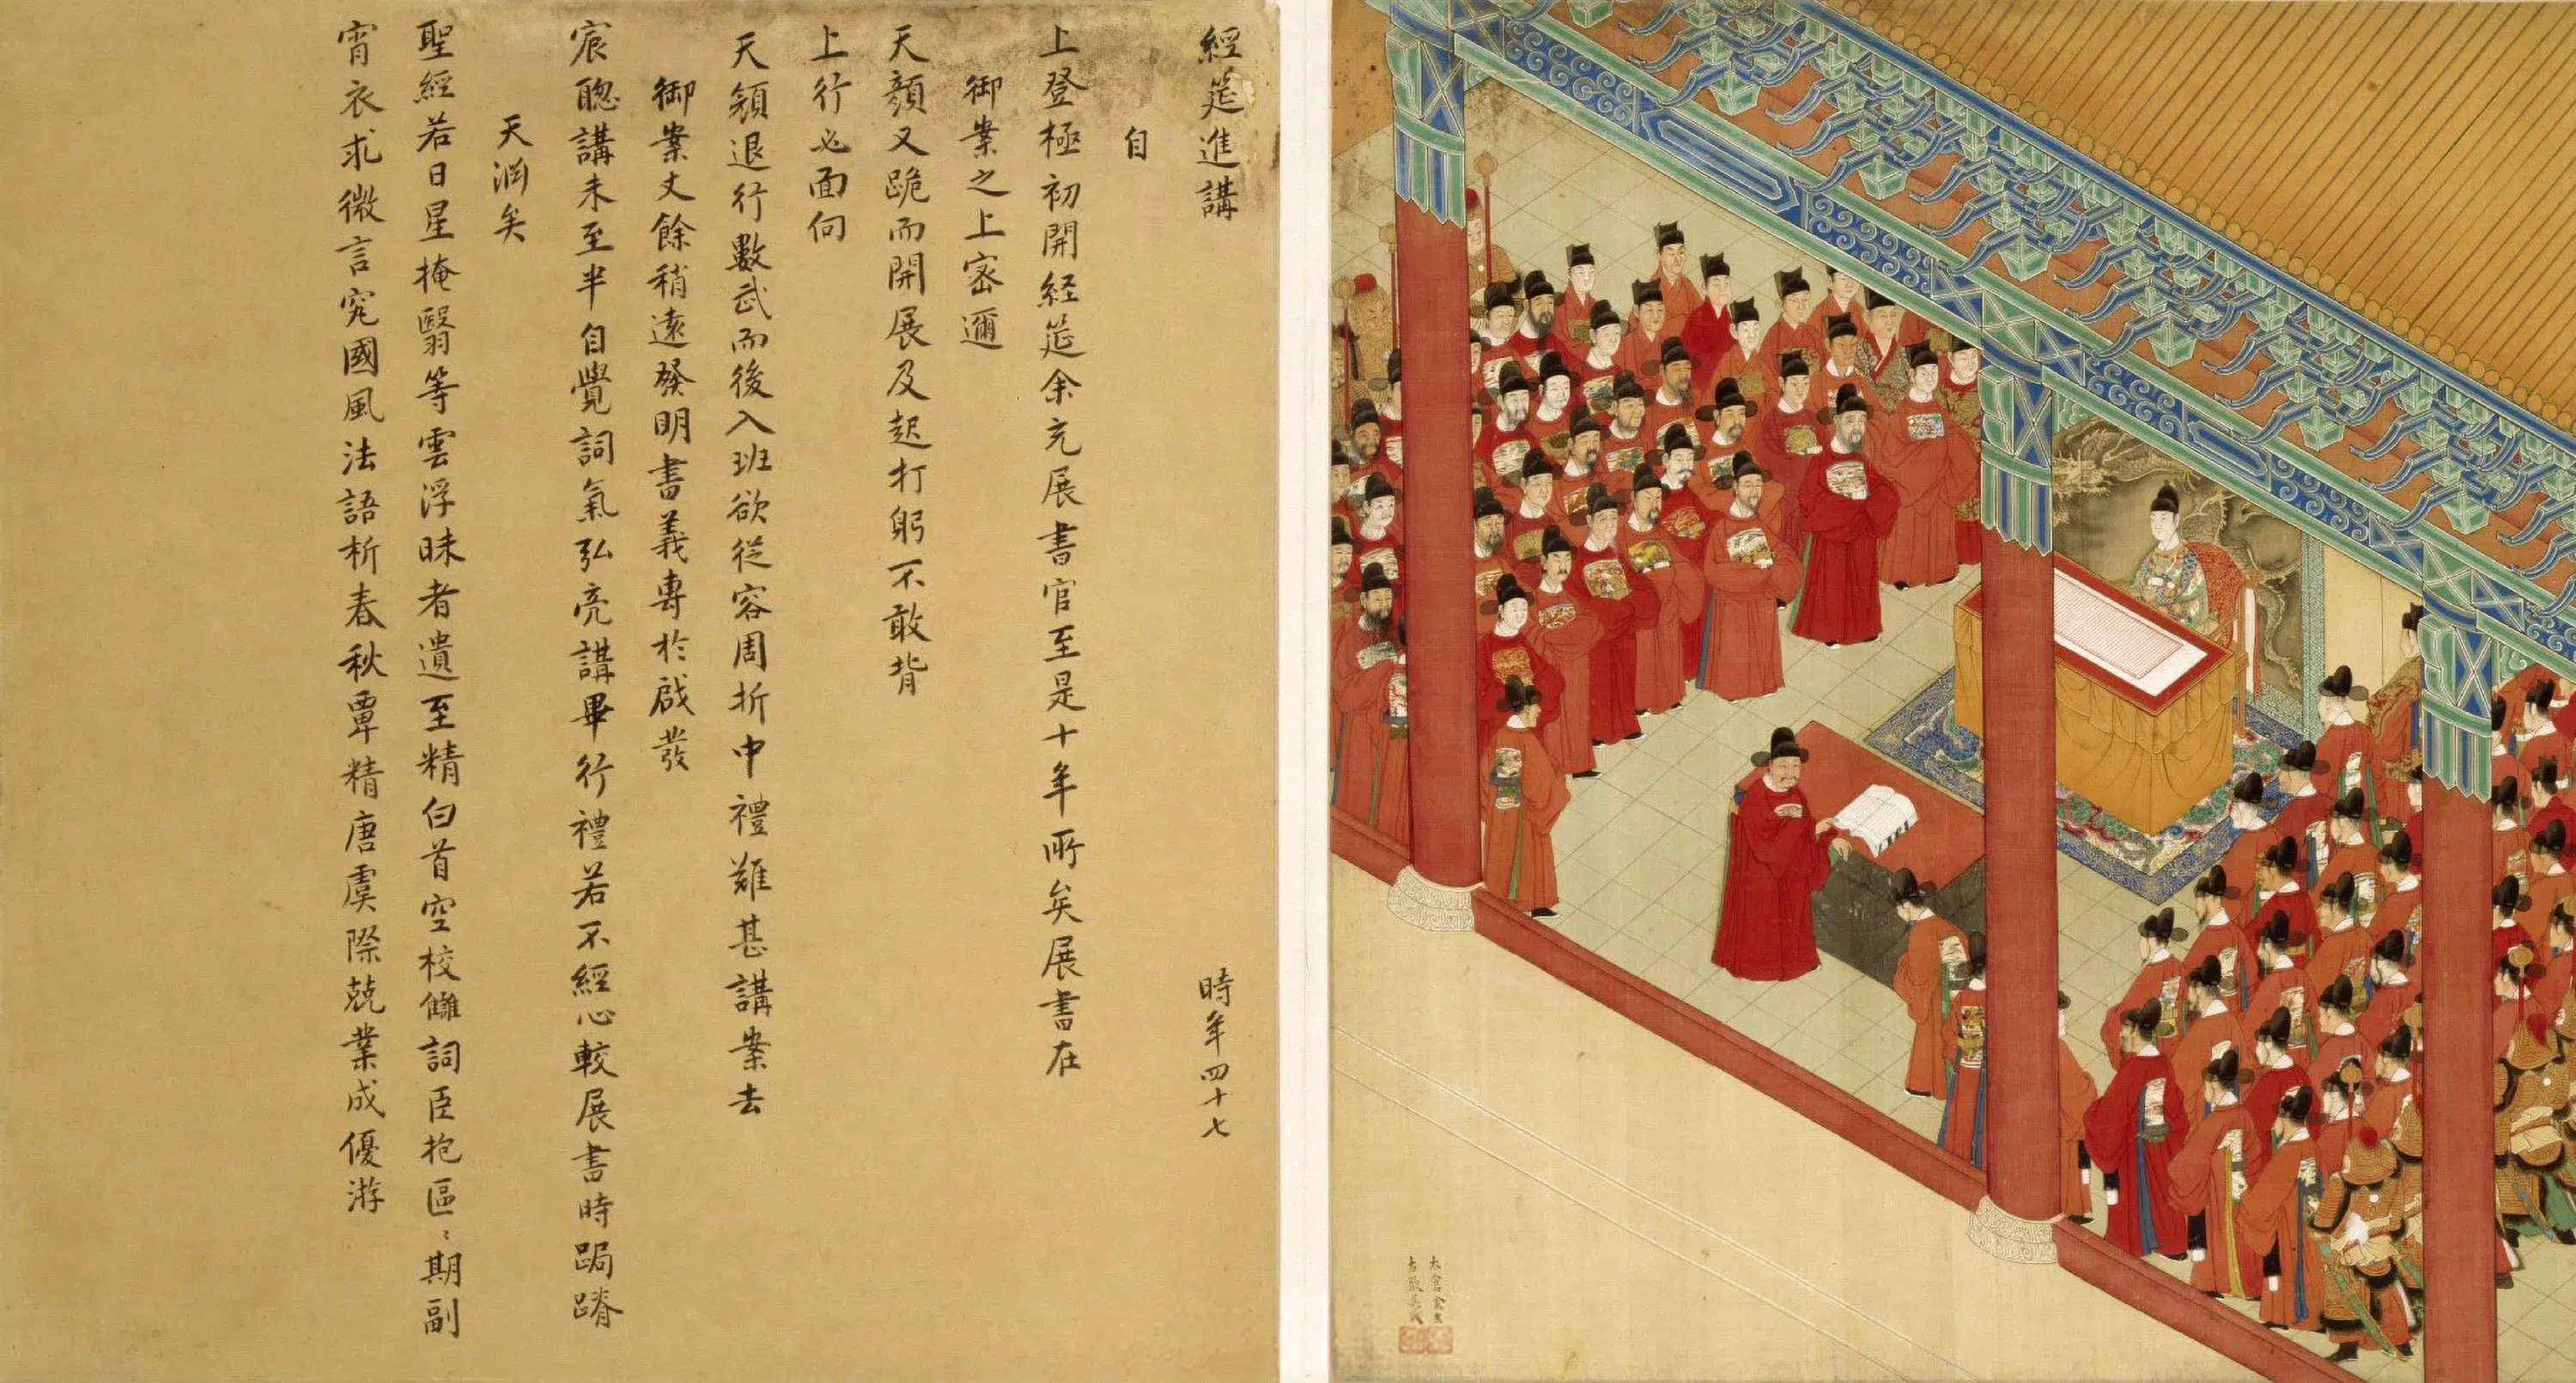 經筵進講　時年四十七
自
上登極初開経筵余充展書官至是十年所矣展書在
御案之上密邇
天顏又跪而開展及起打躬不敢背
上行必面向
天顏退行數武而後入班欲從容周折中禮難甚講案去
御案丈餘稍遠發明書義專於啟發
宸聰講未至半自覺詞氣弘亮講畢行禮若不經心較展書時跼蹐
天淵矣
聖經若日星掩翳等雲浮昧者遺至精白首空校讎詞臣抱區〻期副
宵衣求微言究國風法語析春秋覃精唐虞際兢業成優游